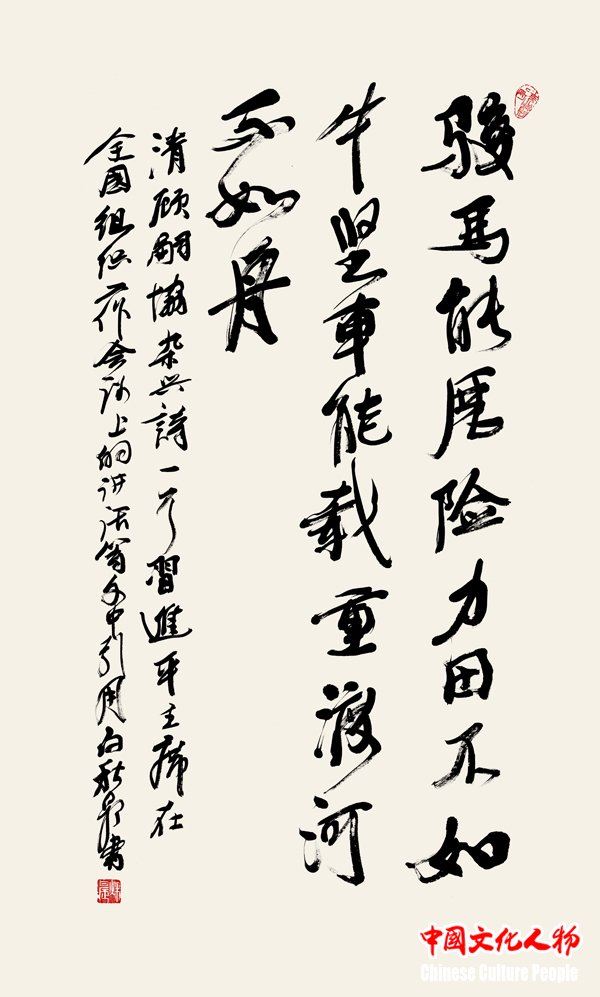 骏马能历险力田不如
牛坚車能载重渡河
不如舟
清顾嗣協杂兴詩一首習進平主席在
全国组织工作会议上的讲话等文中引用白秋景書
中国文化人物
Chinese Culture People